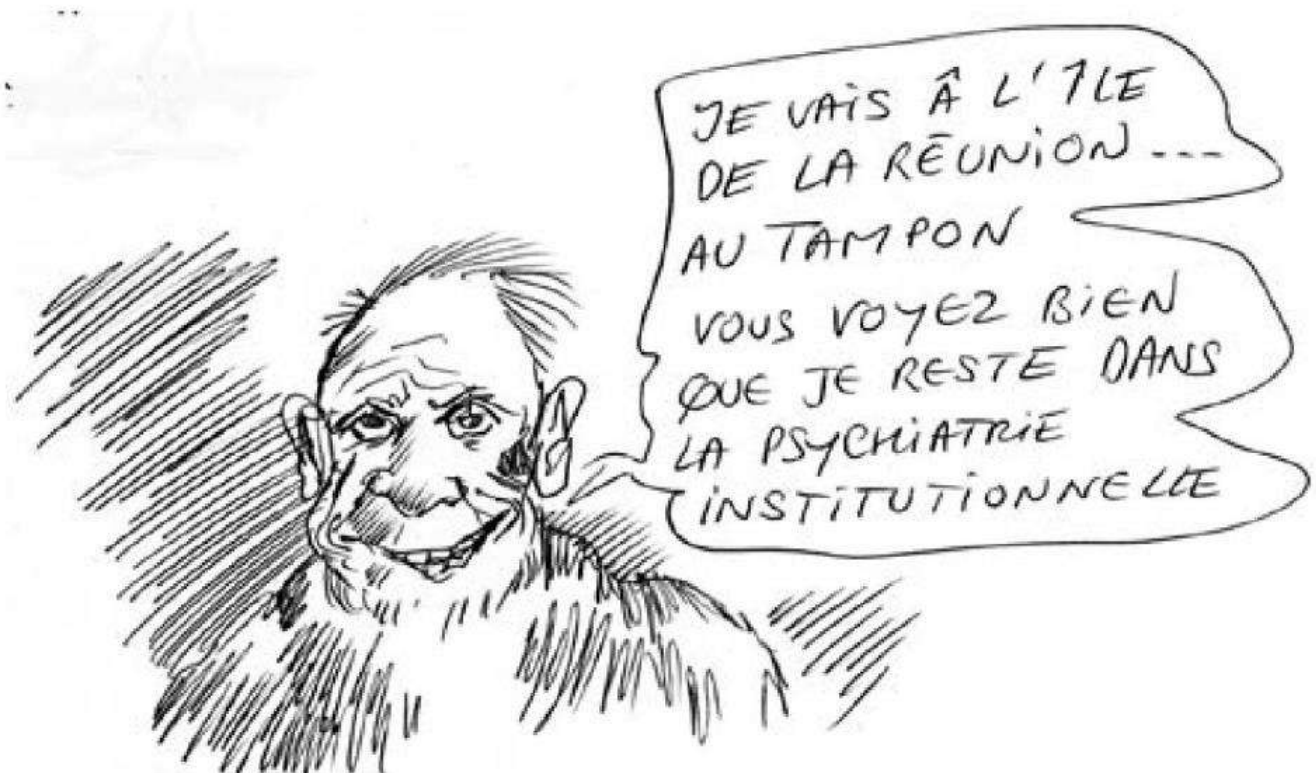 JE VAIS Â L'ILE
DE LA RÉUNION ----
AU TAMPON
VOUS VOYEZ BIEN
QUE JE RESTE DANS
LA PSYCHIATRIE
INSTITUTIONNELLE